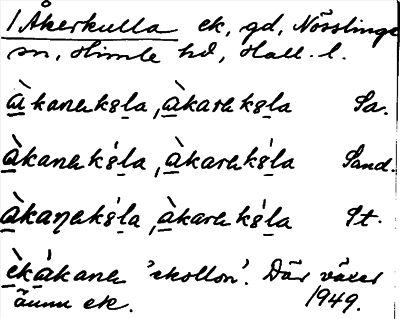 1 Åkerkulla ek, gd, Nösslinge
sn, Himle hd, Hall. l.
àkanaksla, àkaraksla Sa.
àkanaksla, àkaraksla Sand.
àkaŋaksla, àkaraksla St.
èkákana 'ekollon'. Där växer
ännu ek. 1949.